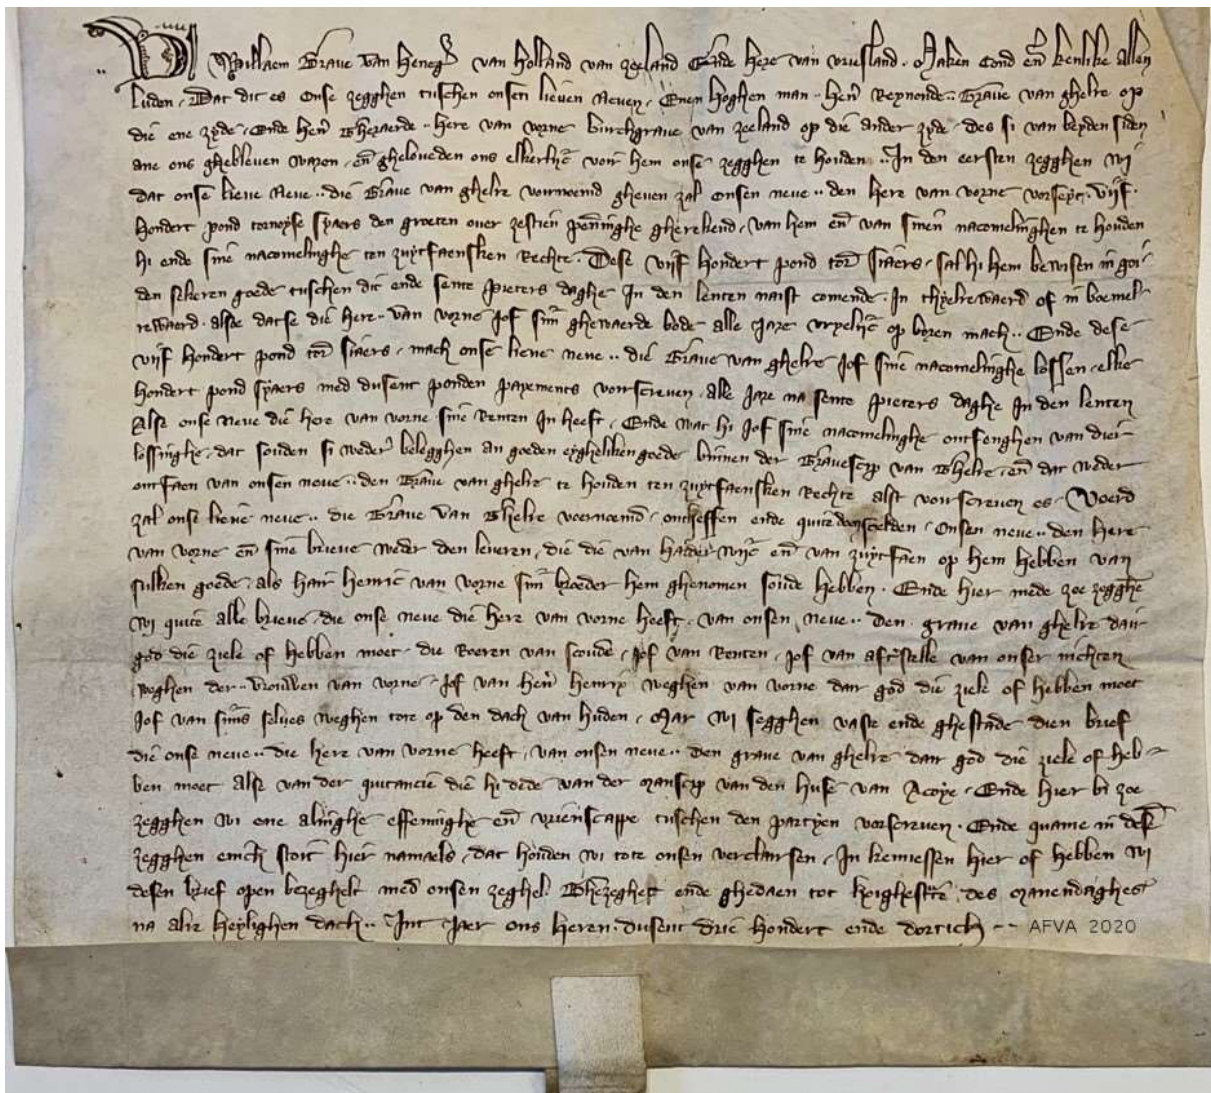 Wi Willaem Grave van Heneg̃ van Holland van Zeeland Ende here van Vriesland. Maken cond en̄ kenlike Allen
luden. Dat dit es onse zegghen tuschen onsen lieven Neven. Enen hoghen man .. hern̄ Reynonde .. Grave van Ghelre op
die ene zyde. Ende hern̄ Gheraerde .. here van Vorne burchgrave van Zeeland op die ander zyde. des si van beyden siden
ane ons ghebleven waren. en̄ gheloveden ons elkerlijc voir hem onse zegghen te houden .. In den eersten zegghen wi
dat onse lieve Neve .. die Grave van Ghelre vornoemd gheven zal onsen neve .. den here van Vorne vorseyt. Vijf
hondert pond tornoyse sjaers den groeten over zestien penninghe gherekend. van hem en̄ van sinen nacomelinghen te houden
hi ende sine nacomelinghe ten zuytfaensken Rechte. Dese vijf hondert pond tor̄ siaers. sal hi hem bewisen in goi
den sekeren goede tuschen dit ende sente Pieters daghe In den lenten naist comende. In Thyelrewaerd of in boemel
rewaerd. alse datse die here .. van Vorne Jof sijn ghewaerde bode alle Jare vryelijc op boren mach .. Ende dese
vijf hondert pond tor̄ siaers. mach onse lieve neve .. die Grave van Ghelre Jof sine nacomelinghe lossen. elke
hondert pond sjaers med dusent ponden payements vorscreven. alle Jare na sente Pieters daghe In den lenten
Alse onse Neve die here van Vorne sine Renten In heeft. Ende wat hi Jof sine nacomelinghe ontfenghen van dier
lossinghe. dat souden si weder belegghen an goeden eygheliken goede binnen der Gravescap van Ghelre. en̄ dat weder
ontfaen van onsen neve .. den Grave van Ghelre te houden ten zuytfaensken Rechte alst vorscreven es. Voerd
zal onse lieve neve .. die Grave van Ghelre voernoemd. ontheffen ende quite scelden. onsen neve .. den here
van Vorne en̄ sine brieve weder den leveren. die die van Harderwijc en̄ van Zuytfaen op hem hebben van
sulken goede. als hair Henric van Vorne sijn broeder hem ghenomen soude hebben. Ende hier mede zoe zegghe
wi quite alle brieve. die onse neve die here van Vorne heeft. van onsen neve .. den grave van Ghelre dair
god die ziele of hebben moet. die Roeren van scoude. Jof van Renten. Jof van afterstelle van onser nichten
weghen der .. vrouwen van Vorne. Jof van hern̄ Henrix weghen van Vorne dair god die ziele of hebben moet
Jof van sijns selves weghen tote op den dach van huden. Mar wi segghen vaste ende ghestade dien brief
die onse neve .. die here van Vorne heeft. van onsen neve .. den grave van Ghelre dair god die ziele of heb
ben moet alse van der quitancie die hi dede van der manscap van den huse van Acoye. Ende hier bi zoe
zegghen wi ene alinghe effeninghe en̄ vrienscappe tuschen den partyen vorscreven. Ende quame in dese
zegghen enich stoit hier namaels. dat houden wi tote onsen verclairsen. In kennessen hier of hebben wi
desen brief open bezeghelt med onsen zeghel. Ghezeghet ende ghedaen tot des manendaghes
na alre heylighen dach .. Int Jaer ons heren. dusent drie hondert ende dortich --
AFVA 2020